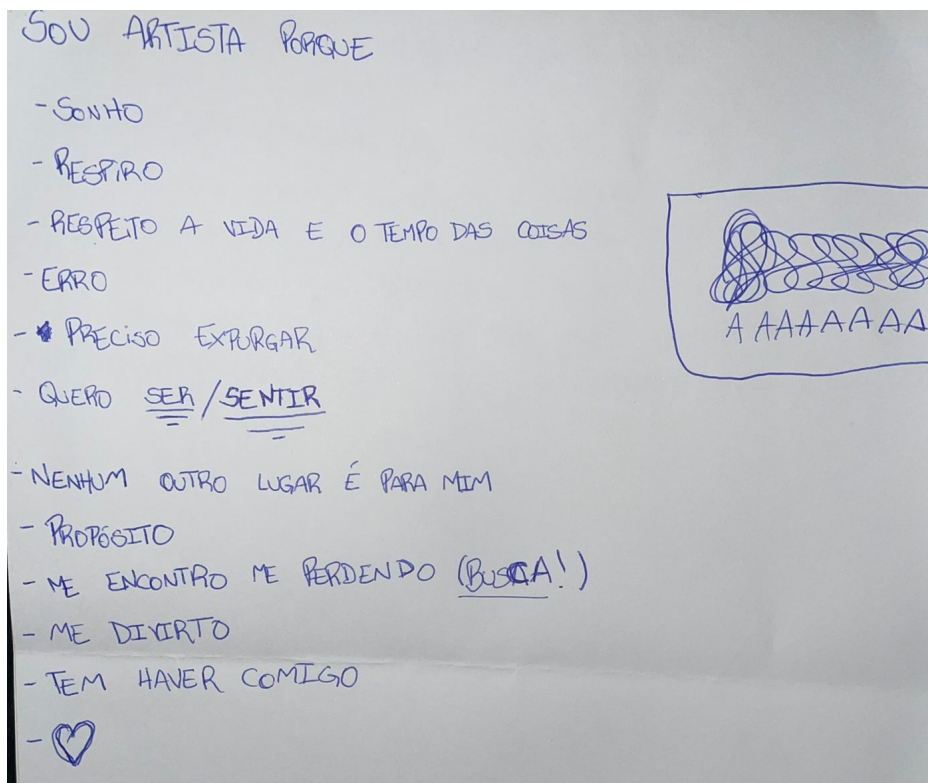 SOU ARTISTA PORQUE
- SONHO
- RESPIRO
- RESPEITO A VIDA E O TEMPO DAS COISAS
- ERRO
- PRECISO EXPURGAR
- QUERO SER/SENTIR
- NENHUM OUTRO LUGAR É PARA MIM
- PROPÓSITO
- ME ENCONTRO ME PERDENDO (BUSCA!)
- ME DIVIRTO
- TEM HAVER COMIGO
- ♡
A AAAAAAA